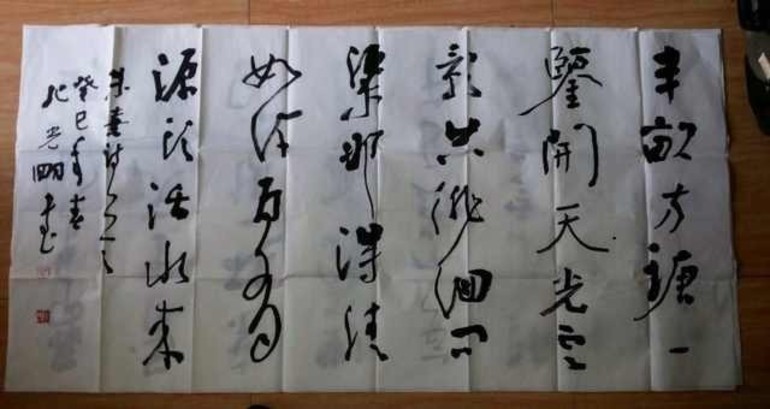 半畝方塘一
鑒開天光云
影共徘徊问
渠那得清
如许为有
源头活水来
朱熹诗一首
癸巳年春
光明书